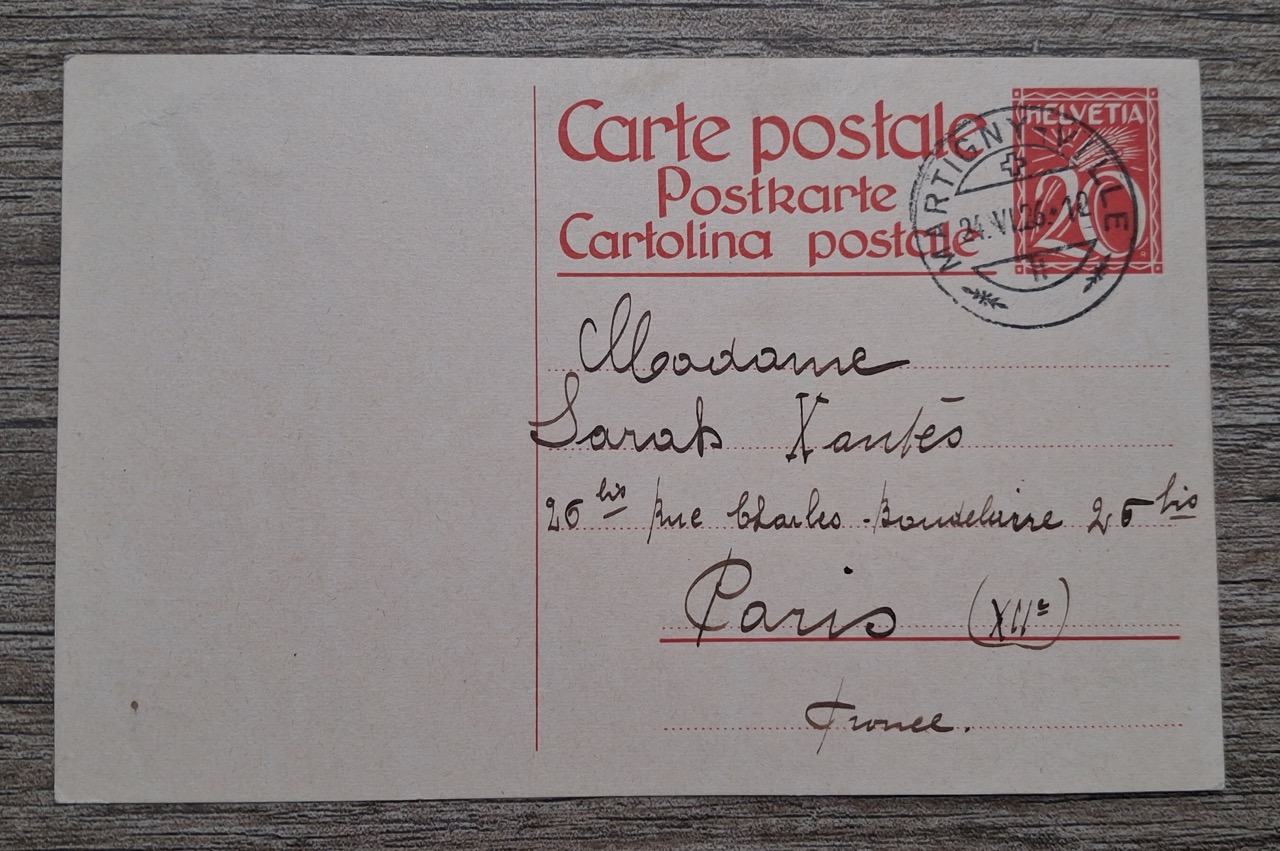 Carte postale
Postkarte
Cartolina postale
HELVETIA
20
MARTIGNY-VILLE
24.VI.26.-12
Madame
Sarah Xantès
26 bis Rue Charles-Baudelaire 26 bis
Paris (XIIe)
France.